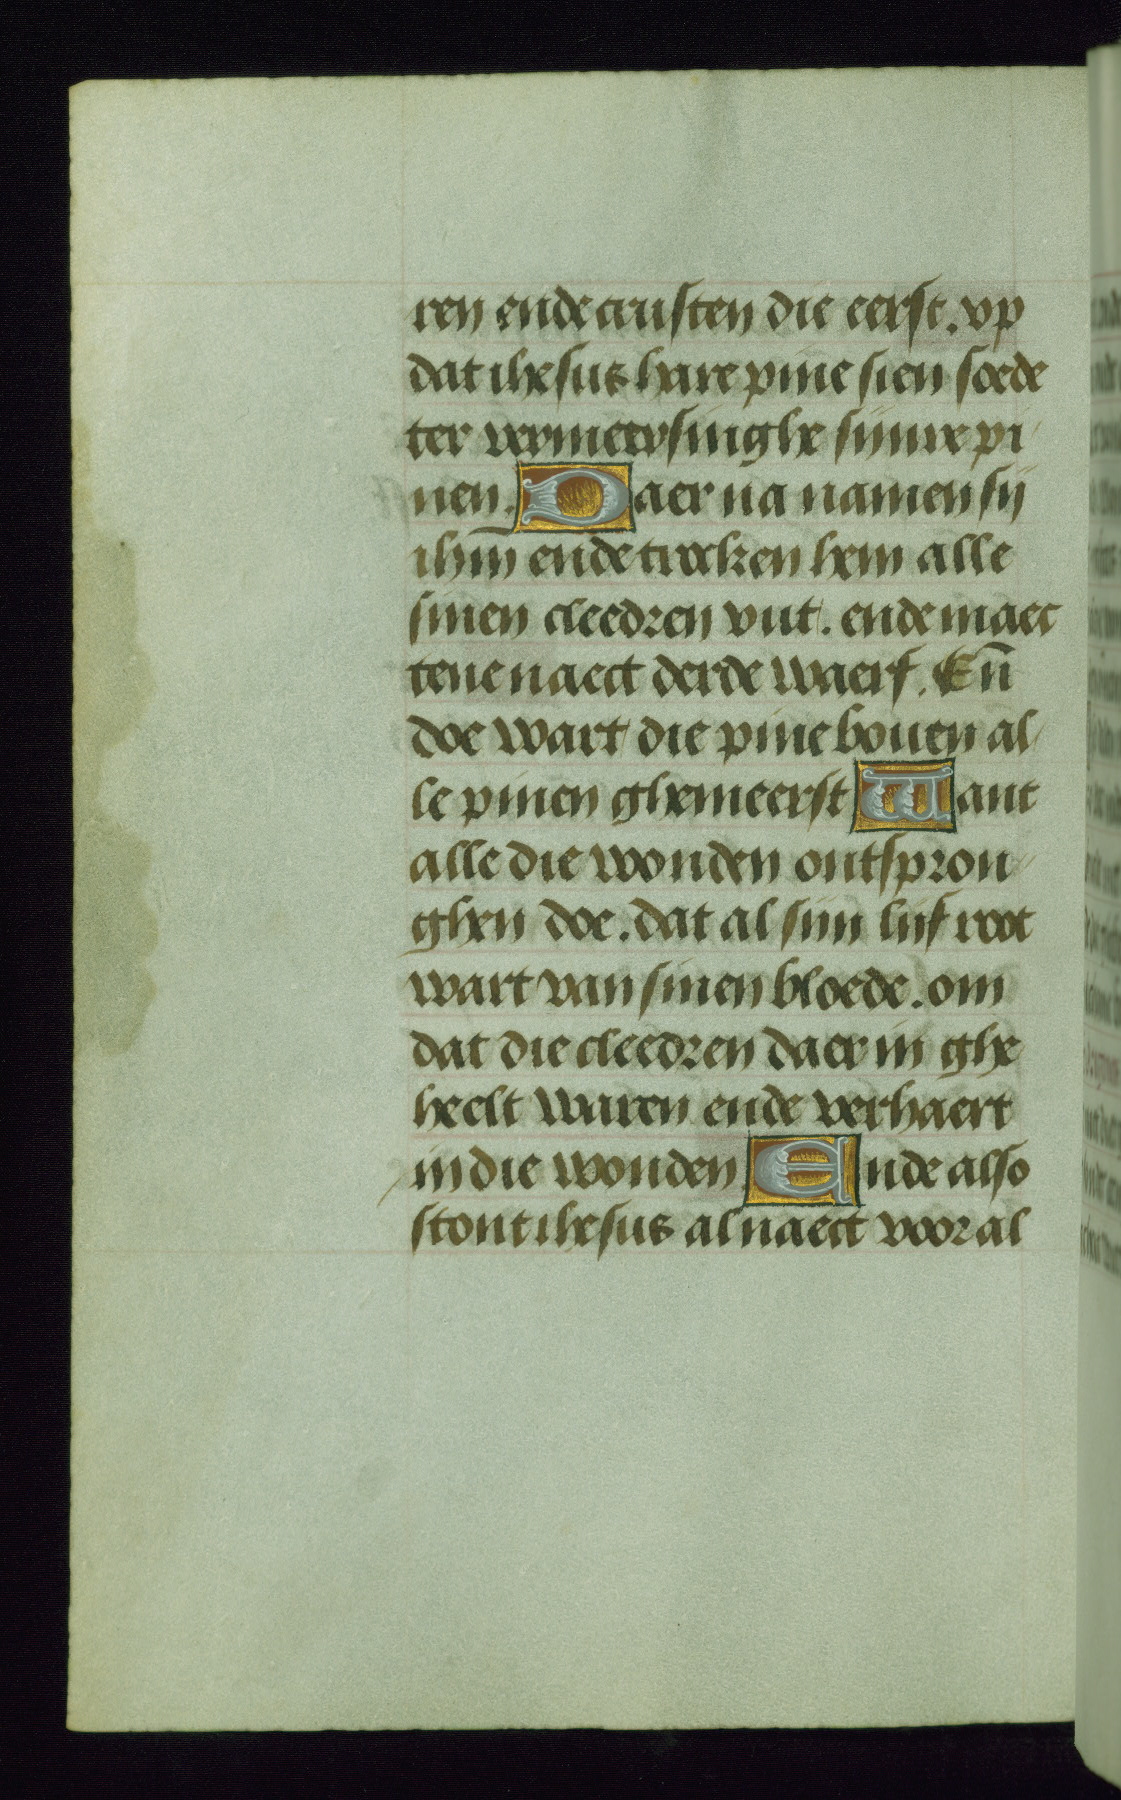 ren ende crusten die eerst. vp
dat ihesus hare pine sien soede
ter vermeersinghe siinre pi
nen. Daer na namen sij
ihm̅ ende trocken hem alle
sinen cleedren vut. ende maec
tene naect derde waerf. En̅
doe wart die pine bouen al
le pinen ghemeerst Want
alle die wonden ontspron
ghen doe. dat al siin liif root
wart van sinen bloede. om
dat die cleedren daer in ghe
heelt waren ende verhaert
in die wonden Ende also
stont ihesus al naect voor al